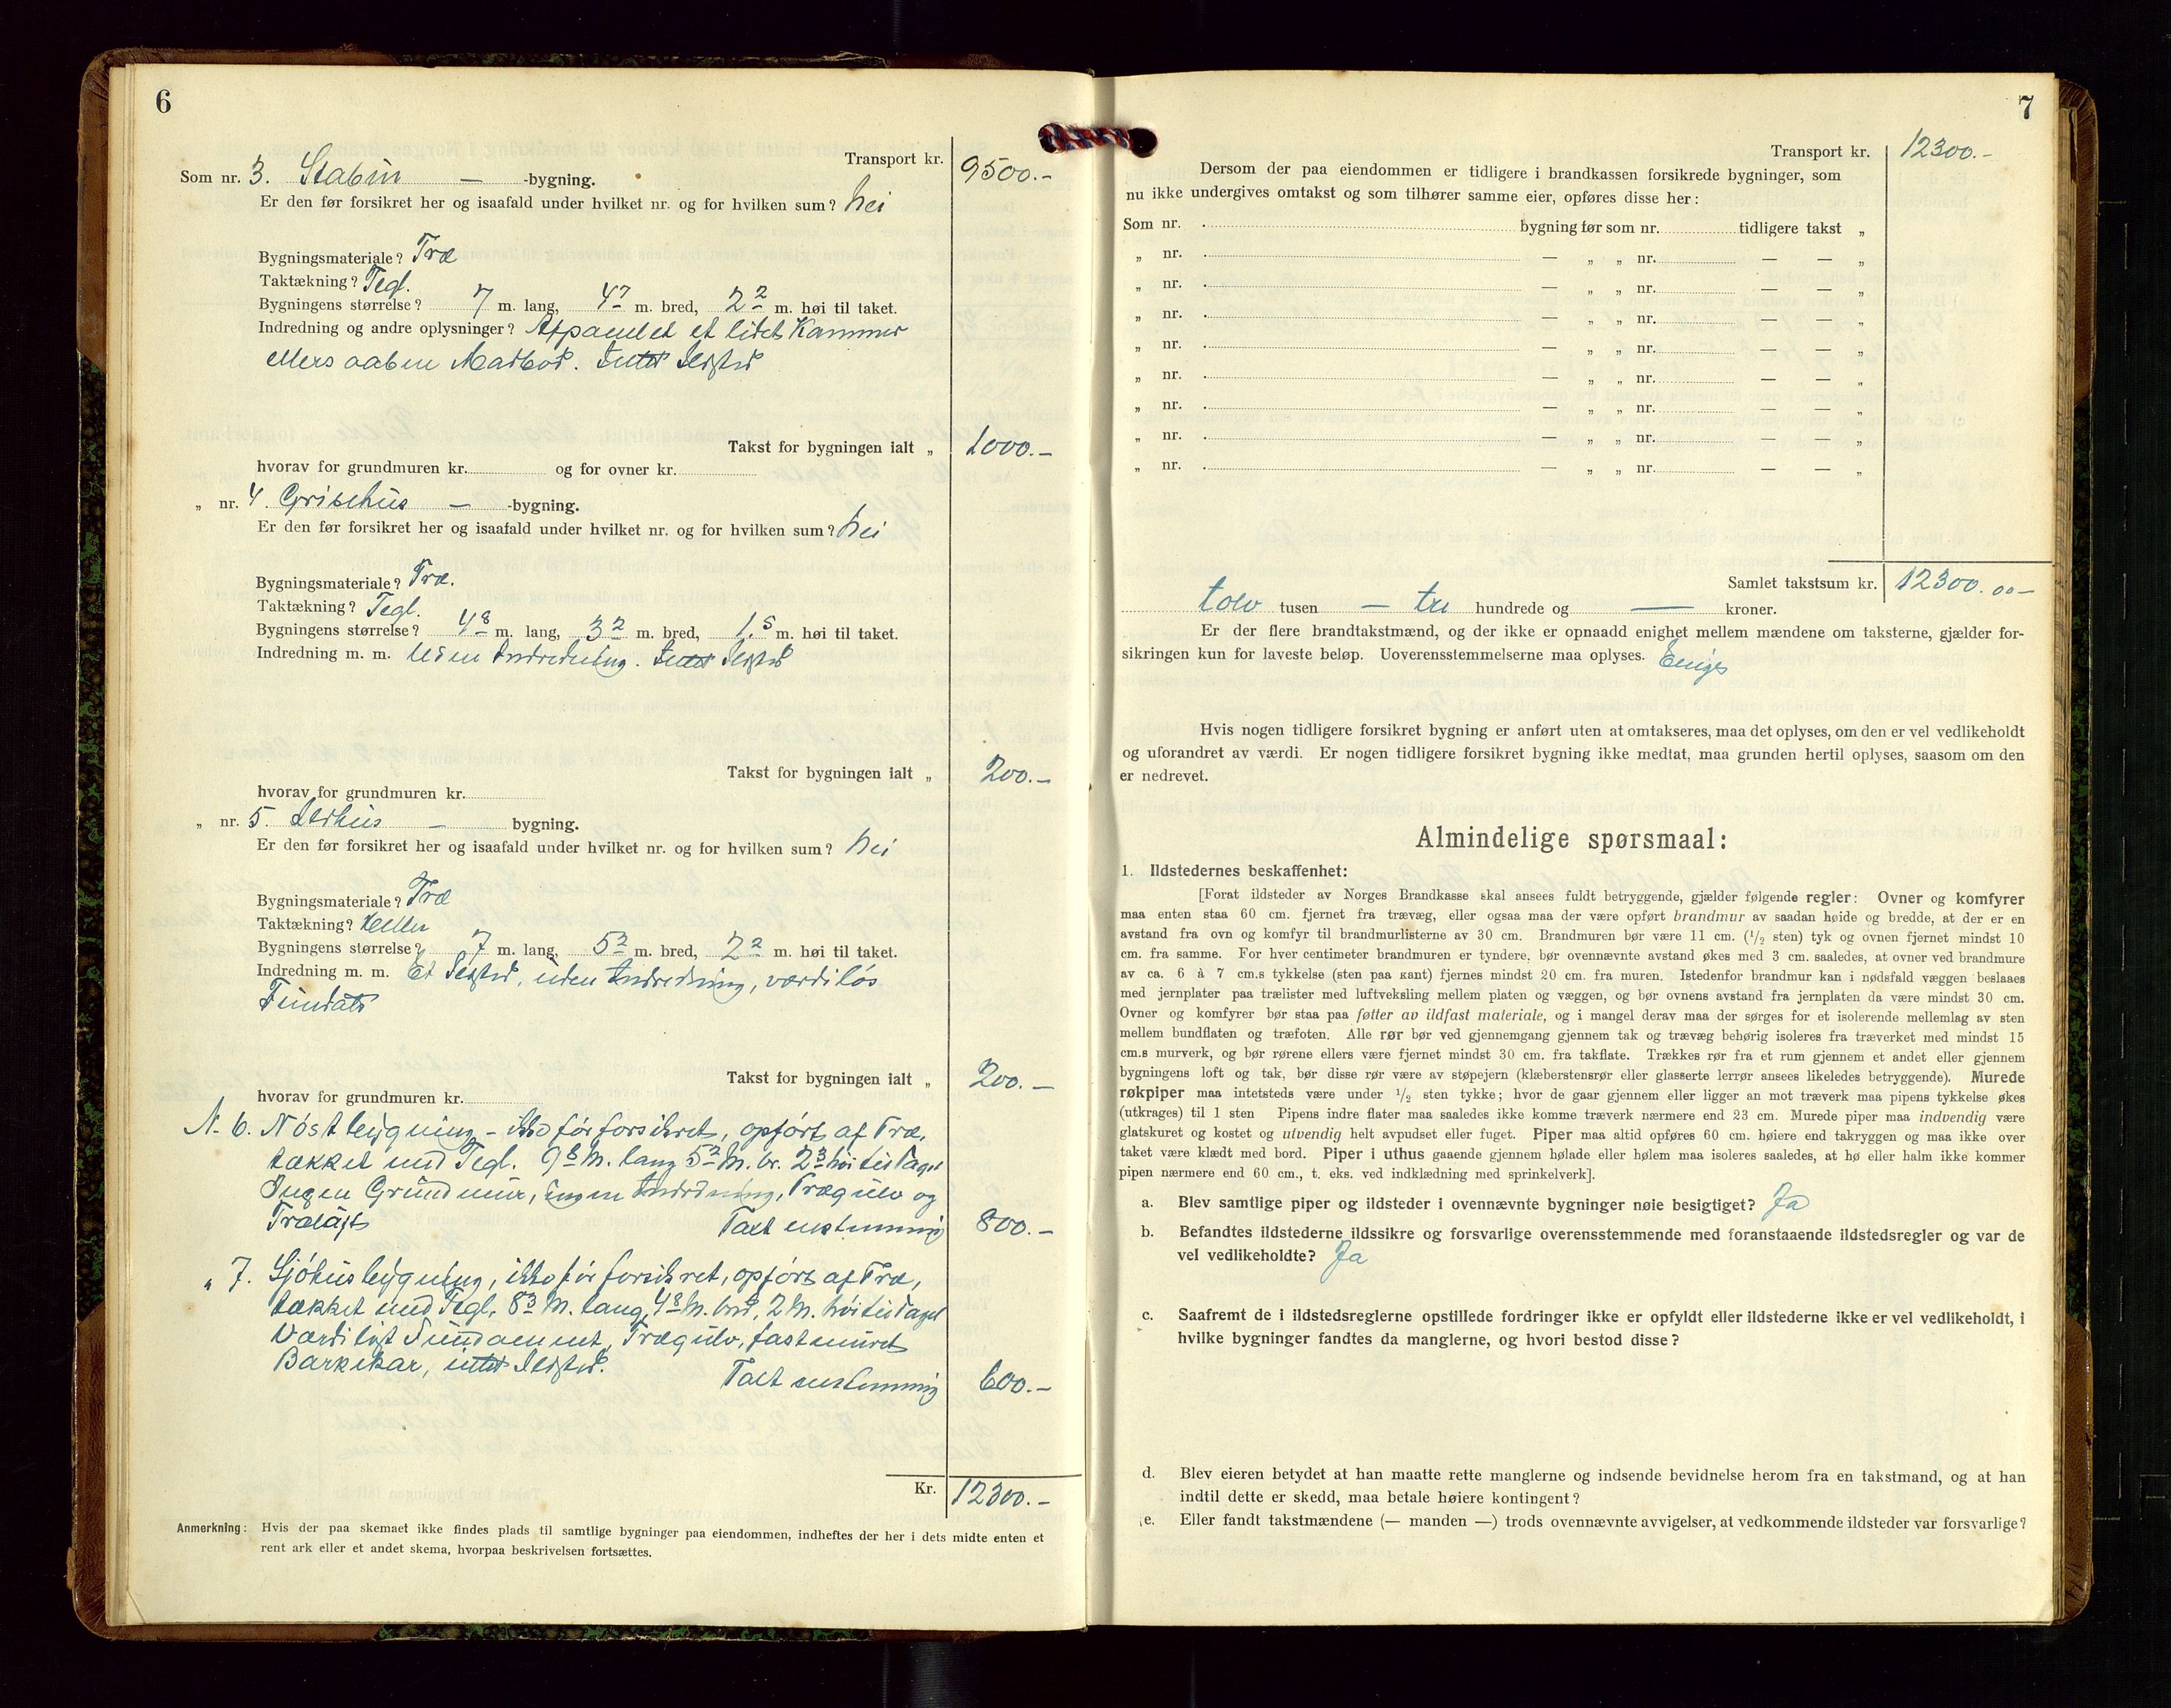 6
Transport kr. 9500.-
Som nr. 3. Stabur — -bygning.
Er den før forsikret her og isaafald under hvilket nr. og for hvilken sum? Nei
Bygningsmateriale? Træ
Taktækning? Tegl.
Bygningens størrelse? 7 m. lang, 4⁷ m. bred, 2² m. høi til taket.
Indredning og andre oplysninger? Afpanelet et lidet Kammer
ellers aaben Madbod. Intet Ildsted
Takst for bygningen ialt „ 1000.-
hvorav for grundmuren kr. og for ovner kr.
„ nr. 4. Grisehus — -bygning.
Er den før forsikret her og isaafald under hvilket nr. og for hvilken sum? Nei
Bygningsmateriale? Træ.
Taktækning? Tegl.
Bygningens størrelse? 4⁸ m. lang, 3² m. bred, 1.⁵ m. høi til taket.
Indredning m. m. Uden Indredning. Intet Ildsted
Takst for bygningen ialt „ 200.-
hvorav for grundmuren kr.
„ nr. 5. Ildhus — bygning.
Er den før forsikret her og isaafald under hvilket nr. og for hvilken sum? Nei
Bygningsmateriale? Træ
Taktækning? Heller
Bygningens størrelse? 7 m. lang, 5² m. bred, 2² m. høi til taket.
Indredning m. m. Et Ildsted, uden Indredning, værdiløs
Fundats
Takst for bygningen ialt „ 200.-
hvorav for grundmuren kr.
N. 6. Nöstbygning - ikke för forsikret, opfört af Træ,
tækket med Tegl. 9⁸ M. lang 5² M. br. 2³ höi til Taget
Ingen Grundmur, ingen Indredning, Trægulv og
Træloft Talt enstemmig 800.-
„ 7. Sjöhusbygning, ikke för forsikret, opfört af Træ,
tækket med Tegl, 8³ M. lang, 4⁸ M. bred, 2 M. höi til Taget
Værdiløst Fundament, Trægulv, fastmuret
Barkekar, intet Ildsted. Talt enstemmig 600.-
Kr. 12300.-
Anmerkning: Hvis der paa skemaet ikke findes plads til samtlige bygninger paa eiendommen, indheftes der her i dets midte enten et
rent ark eller et andet skema, hvorpaa beskrivelsen fortsættes.
7
Transport kr. 12300.-
Dersom der paa eiendommen er tidligere i brandkassen forsikrede bygninger, som
nu ikke undergives omtakst og som tilhører samme eier, opføres disse her:
Som nr. bygning før som nr. tidligere takst „
„ nr. — „ „ nr. — — „
„ nr. — „ „ nr. — — „
„ nr. — „ „ nr. — — „
„ nr. — „ „ nr. — — „
„ nr. — „ „ nr. — — „
„ nr. — „ „ nr. — — „
„ nr. — „ „ nr. — — „
„ nr. — „ „ nr. — — „
Samlet takstsum kr. 12300.00-
tolv tusen — tre hundrede og — kroner.
Er der flere brandtakstmænd, og der ikke er opnaadd enighet mellem mændene om taksterne, gjælder for-
sikringen kun for laveste beløp. Uoverensstemmelserne maa oplyses. Enige
Hvis nogen tidligere forsikret bygning er anført uten at omtakseres, maa det oplyses, om den er vel vedlikeholdt
og uforandret av værdi. Er nogen tidligere forsikret bygning ikke medtat, maa grunden hertil oplyses, saasom om den
er nedrevet.
Almindelige spørsmaal:
1. Ildstedernes beskaffenhet:
[Forat ildsteder av Norges Brandkasse skal ansees fuldt betryggende, gjælder følgende regler: Ovner og komfyrer
maa enten staa 60 cm. fjernet fra trævæg, eller ogsaa maa der være opført brandmur av saadan høide og bredde, at der er en
avstand fra ovn og komfyr til brandmurlisterne av 30 cm. Brandmuren bør være 11 cm. (1/2 sten) tyk og ovnen fjernet mindst 10
cm. fra samme. For hver centimeter brandmuren er tyndere, bør ovennævnte avstand økes med 3 cm. saaledes, at ovner ved brandmure
av ca. 6 à 7 cm.s tykkelse (sten paa kant) fjernes mindst 20 cm. fra muren. Istedenfor brandmur kan i nødsfald væggen beslaaes
med jernplater paa trælister med luftveksling mellem platen og væggen, og bør ovnens avstand fra jernplaten da være mindst 30 cm.
Ovner og komfyrer bør staa paa føtter av ildfast materiale, og i mangel derav maa der sørges for et isolerende mellemlag av sten
mellem bundflaten og træfoten. Alle rør bør ved gjennemgang gjennem tak og trævæg behørig isoleres fra træverket med mindst 15
cm.s murverk, og bør rørene ellers være fjernet mindst 30 cm. fra takflate. Trækkes rør fra et rum gjennem et andet eller gjennem
bygningens loft og tak, bør disse rør være av støpejern (klæberstensrør eller glasserte lerrør ansees likeledes betryggende). Murede
røkpiper maa intetsteds være under 1/2 sten tykke; hvor de gaar gjennem eller ligger an mot træverk maa pipens tykkelse økes
(utkrages) til 1 sten Pipens indre flater maa saaledes ikke komme træverk nærmere end 23 cm. Murede piper maa indvendig være
glatskuret og kostet og utvendig helt avpudset eller fuget. Piper maa altid opføres 60 cm. høiere end takryggen og maa ikke over
taket være klædt med bord. Piper i uthus gaaende gjennem hølade eller hølem maa isoleres saaledes, at hø eller halm ikke kommer
pipen nærmere end 60 cm., t. eks. ved indklædning med sprinkelverk].
a. Blev samtlige piper og ildsteder i ovennævnte bygninger nøie besigtiget? Ja
b. Befandtes ildstederne ildssikre og forsvarlige overensstemmende med foranstaaende ildstedsregler og var de
vel vedlikeholdte? Ja
c. Saafremt de i ildstedsreglerne opstillede fordringer ikke er opfyldt eller ildstederne ikke er vel vedlikeholdt, i
hvilke bygninger fandtes da manglerne, og hvori bestod disse?
d. Blev eieren betydet at han maatte rette manglerne og indsende bevidnelse herom fra en takstmand, og at han
indtil dette er skedd, maa betale høiere kontingent?
e. Eller fandt takstmændene (— manden —) trods ovennævnte avvigelser, at vedkommende ildsteder var forsvarlige?